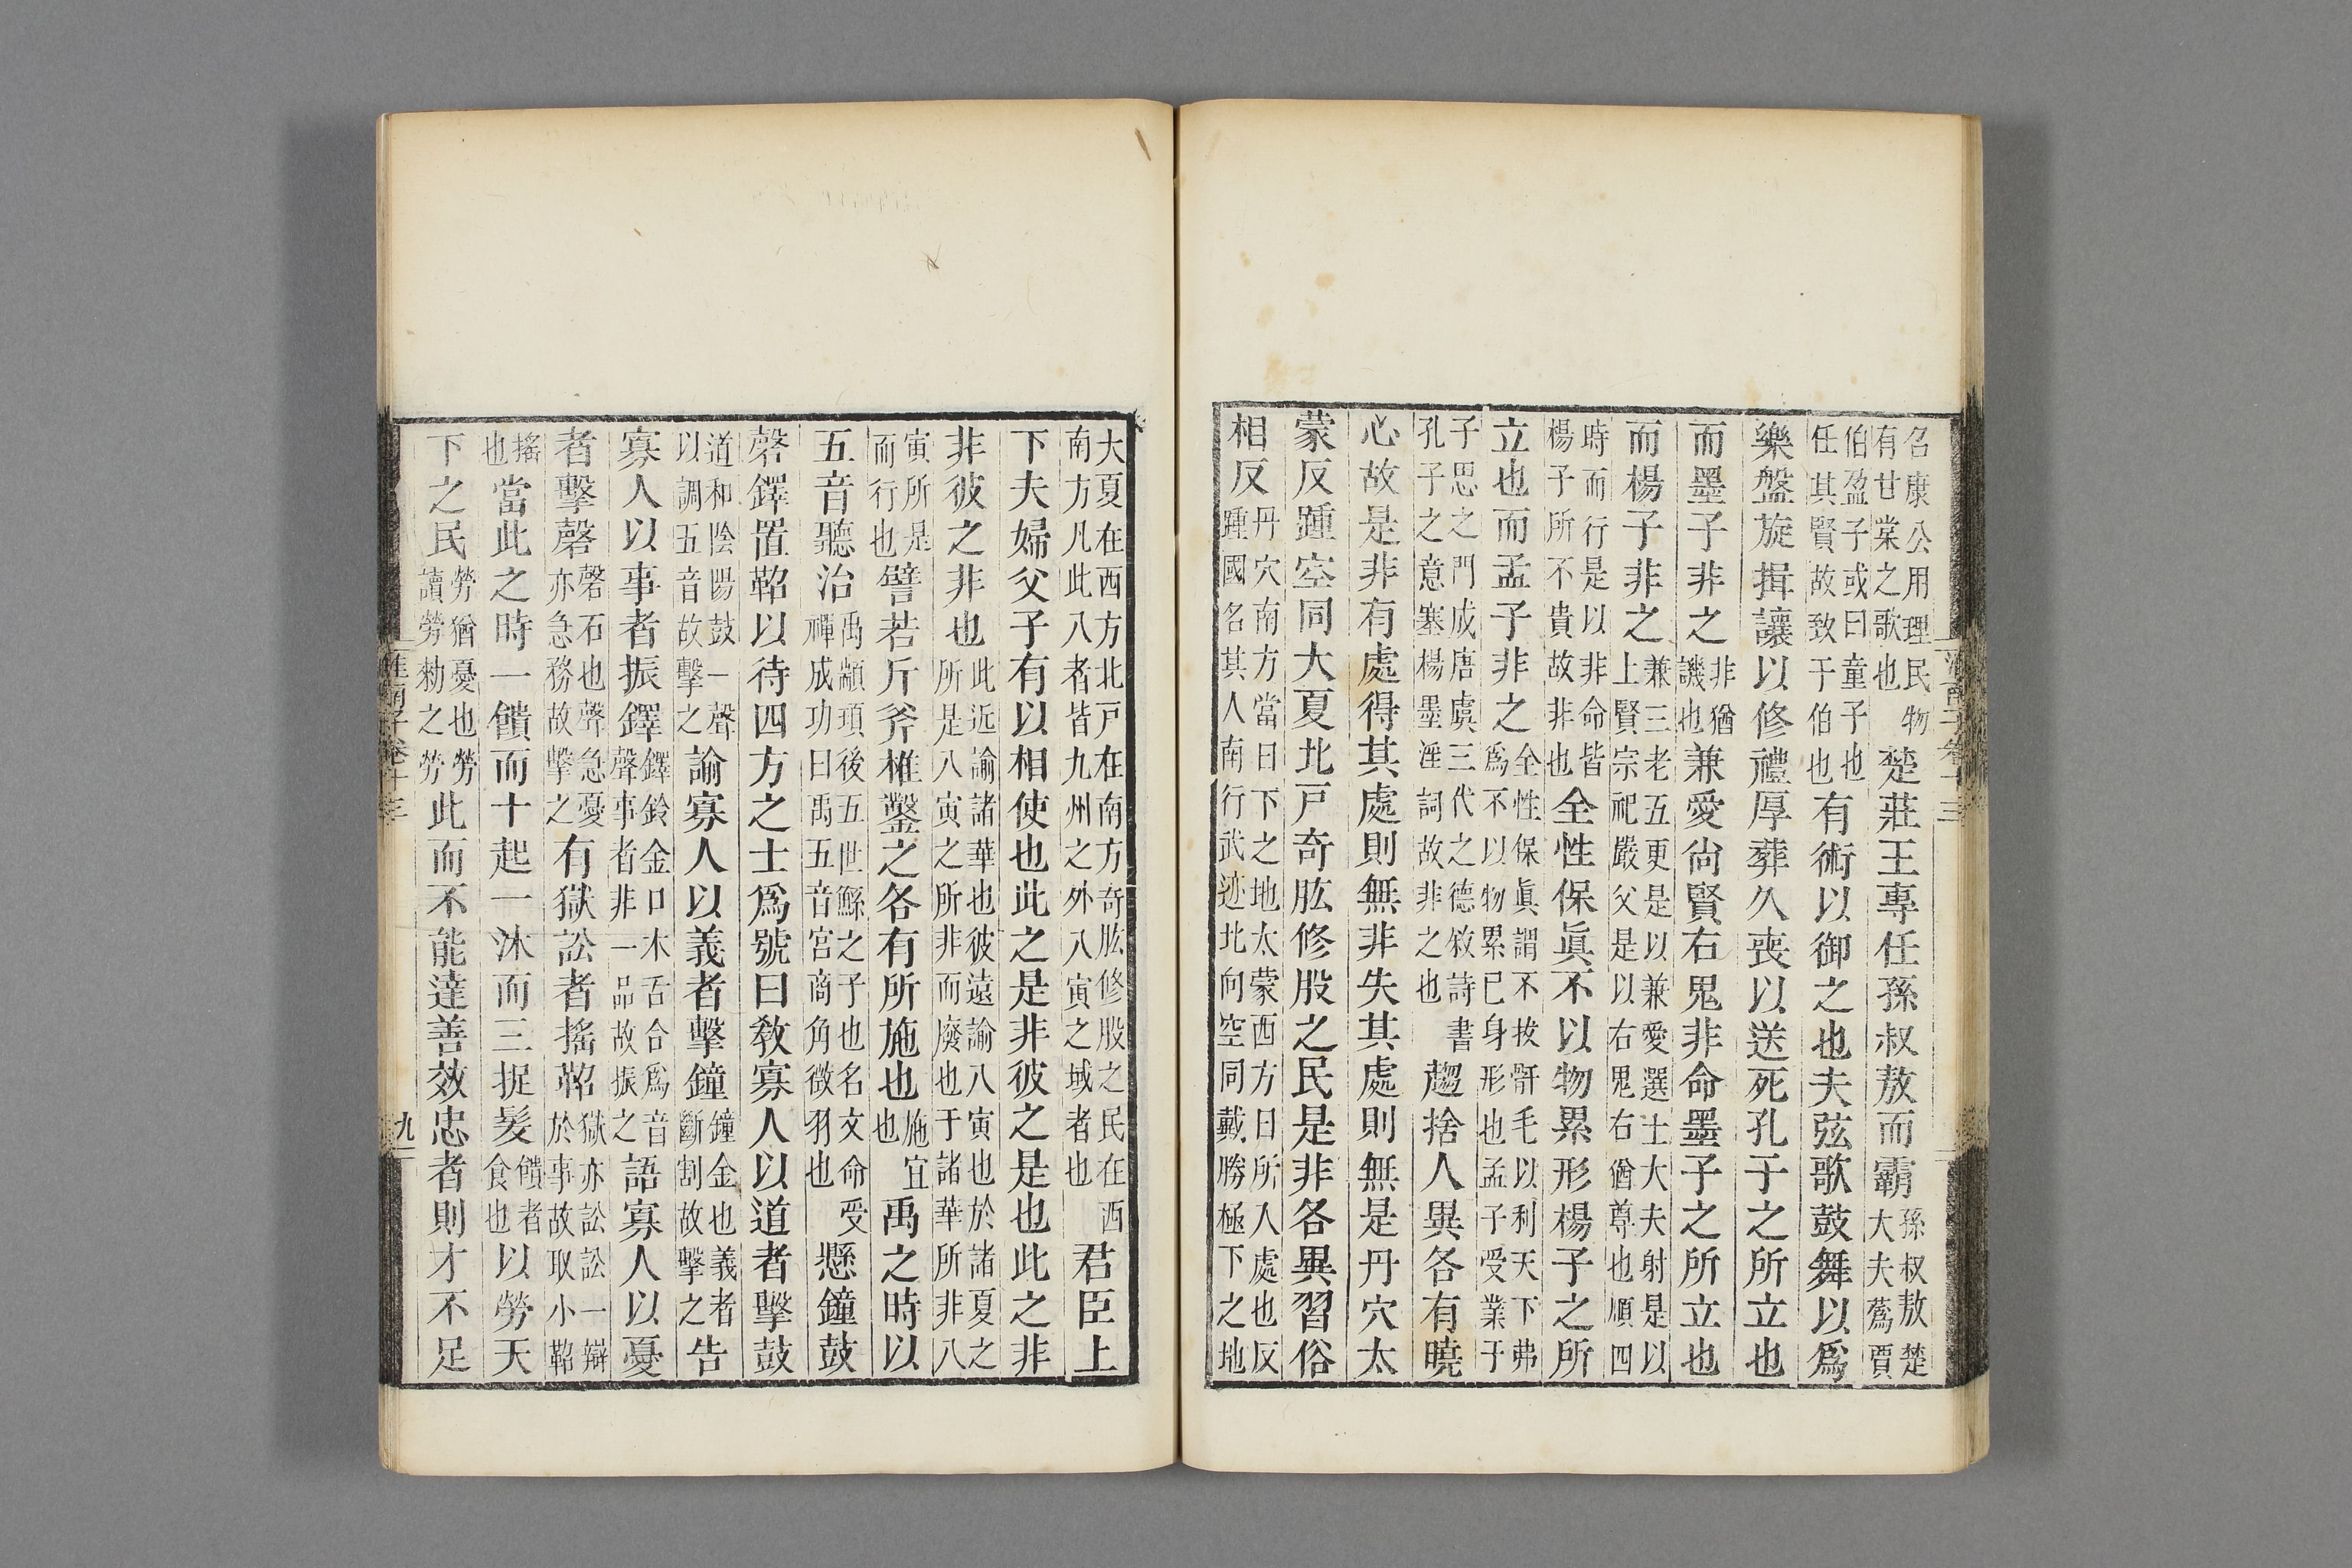 召康公用理民物有甘棠之歌也楚莊王專任孫叔敖而霸孫叔敖楚大夫蔿賈
伯盈子或曰童子也任其賢故致于伯也有術以御之也夫弦歌鼓舞以爲
樂盤旋揖讓以修禮厚葬久喪以送死孔子之所立也
而墨子非之非猶譏也兼愛尙賢右鬼非命墨子之所立也
而楊子非之兼三老五更是以兼愛選士大夫射是以上賢宗祀嚴父是以右鬼右猶尊也順四
時而行是以非命皆楊子所不貴故非也全性保眞不以物累形楊子之所
立也而孟子非之全性保眞謂不拔骭毛以利天下弗爲不以物累已身形也孟子受業于
子思之門成唐虞三代之德敘詩書孔子之意塞楊墨淫詞故非之也趨捨人異各有曉
心故是非有處得其處則無非失其處則無是丹穴太
蒙反踵空同大夏北戸奇肱修股之民是非各異習俗
相反丹穴南方當日下之地太蒙西方日所入處也反踵國名其人南行武迹北向空同戴勝極下之地
大夏在西方北戸在南方奇肱修股之民在西南方凡此八者皆九州之外八寅之域者也君臣上
下夫婦父子有以相使也此之是非彼之是也此之非
非彼之非也此近諭諸華也彼遠諭八寅也於諸夏之所是八寅之所非而廢也于諸華所非八
寅所是而行也譬若斤斧椎鑿之各有所施也施宜也禹之時以
五音聽治禹顓頊後五世鯀之子也名文命受禪成功曰禹五音宮商角徵羽也懸鐘鼓
磬鐸置鞀以待四方之士爲號曰敎寡人以道者擊鼓
道和陰陽鼓一聲以調五音故擊之諭寡人以義者擊鐘鐘金也義者斷割故擊之告
寡人以事者振鐸鐸鈴金口木舌合爲音聲事者非一品故振之語寡人以憂
者擊磬磬石也聲急憂亦急務故擊之有獄訟者搖鞀獄亦訟訟一辯於事故取小鞀
搖也當此之時一饋而十起一沐而三捉髮饋者食也以勞天
下之民勞猶憂也勞讀勞勑之勞此而不能達善效忠者則才不足
淮南子卷十三
九